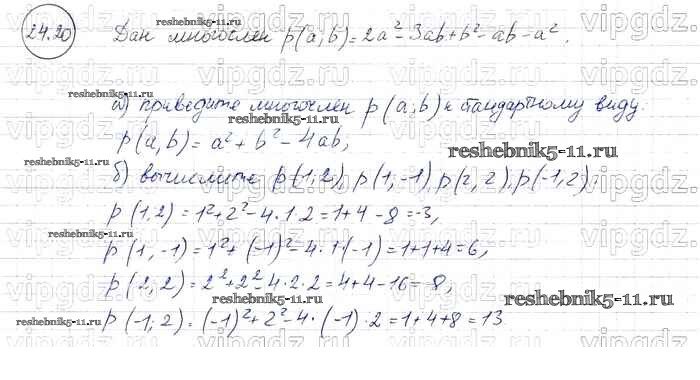 24.20 Дан многочлен p(a;b)=2a²-3ab+b²-ab-a².
а) приведите многочлен p(a;b) к стандартному виду.
p(a,b)=a²+b²-4ab;
б) вычислите p(1,2), p(1,-1), p(2,2), p(-1,2).
p(1,2)=1²+2²-4·1·2=1+4-8=-3,
p(1,-1)=1²+(-1)²-4·1·(-1)=1+1+4=6,
p(2,2)=2²+2²-4·2·2=4+4-16=-8,
p(-1;2)=(-1)²+2²-4·(-1)·2=1+4+8=13
reshebnik5-11.ru
reshebnik5-11.ru
reshebnik5-11.ru
reshebnik5-11.ru
reshebnik5-11.ru
reshebnik5-11.ru
reshebnik5-11.ru
reshebnik5-11.ru
reshebnik5-11.ru
vipgdz.ru